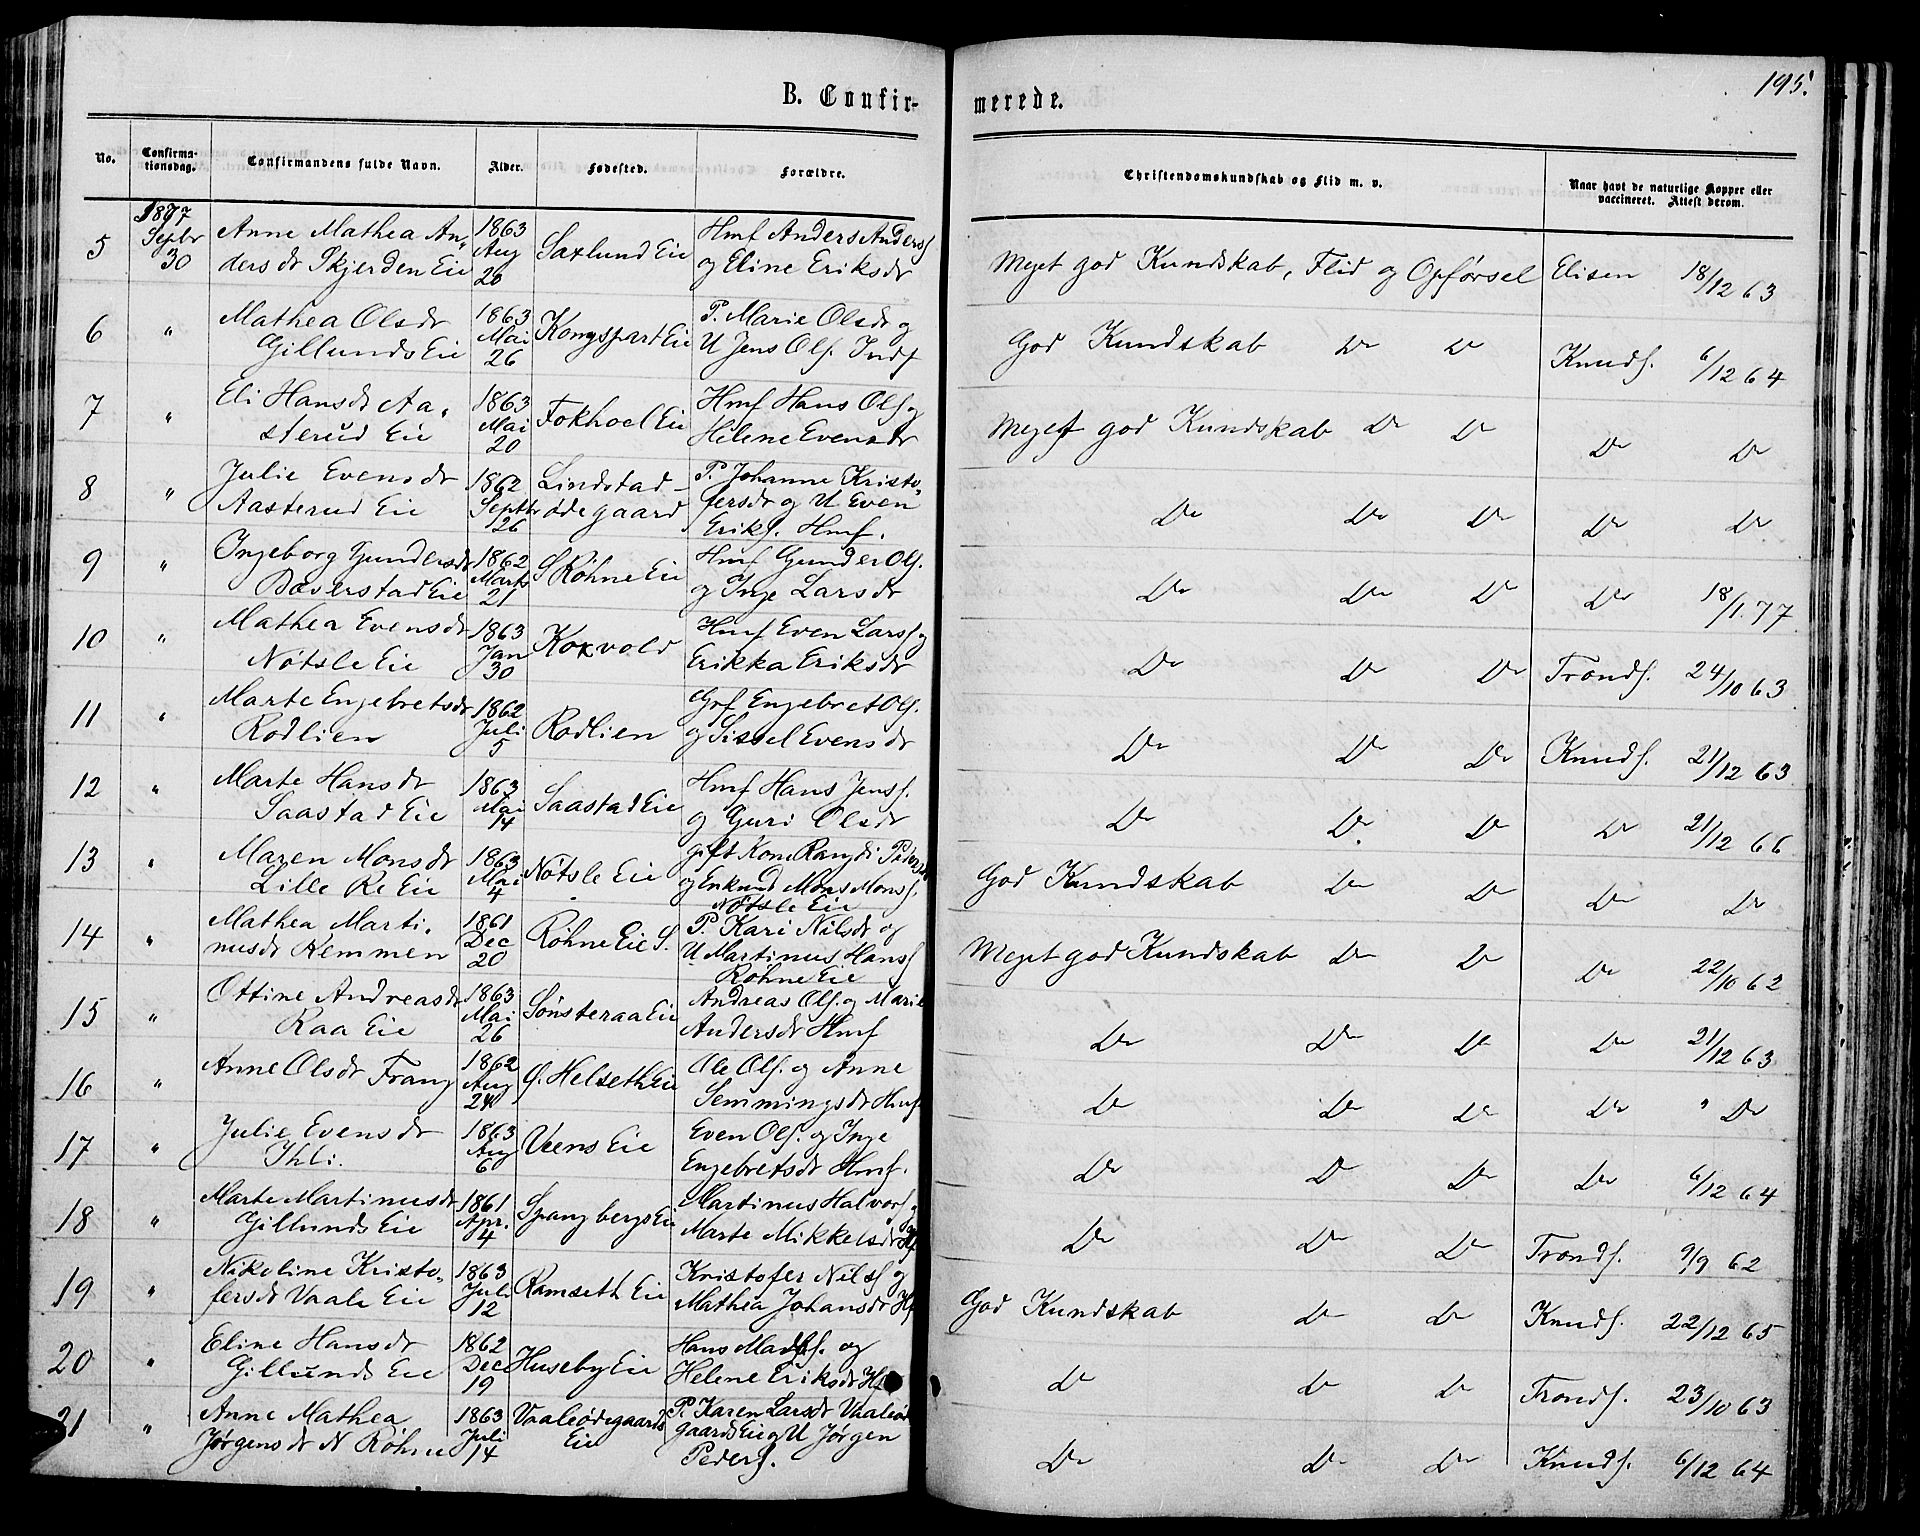 195.
B. Confirmerede.
No. Confirmationsdag. Confirmandens fulde Navn. Alder. Fødested. Forældre. Christendomskundskab og Flid m. v. Naar havt de naturlige Kopper eller vaccineret. Attest derom.
5 1877 Septbr 30 Anne Mathea Andersdt Skjerden Eie 1863 Aug 20 Saxlund Eie Hmf Anders Anders. og Eline Eriksdt Meget god Kundskab, Flid og Opførsel Elisen 18/12 63
6 " Mathea Olsdt Gillunds Eie 1863 Mai 26 Kongspart Eie P. Marie Olsdt og U Jens Ols. Indf God Kundskab Do Do Knuds. 6/12 64
7 " Eli Hansdt Aasterud Eie 1863 Mai 20 Fokhoel Eie Hmf Hans Ols og Helene Evensdt Meget god Kundskab Do Do Do Do
8 " Julie Evensdt Aasterud Eie 1862 Septbr 26 Lindstad-ødegaard P. Johanne Kristofersdt og U Even Eriks. Hmf. Do Do Do Do Do
9 " Ingeborg Gundersdt Bæverstad Eie 1862 Marts 21 S Røhne Eie Hmf Gunder Ols. og Inge Larsdt Do Do Do Do 18/1.77
10 " Mathea Evensdt Nøtsle Eie 1863 Jan 30 Koxvold Hmf Even Larss og Erikka Eriksdt Do Do Do Tronds. 24/10 63
11 " Marte Engebretsdt Rødlien 1862 Juli 5 Rødlien Grf Engebret Ols. og Sissel Evensdt Do Do Do Knuds. 21/12 63
12 " Marte Hansdt Saastad Eie 1863 Mai 14 Saastad Eie Hmf Hans Jenss. og Guri Olsdt Do Do Do Do 21/12 66
13 " Maren Monsdt Lille Re Eie 1863 Mai 4 Nøtsle Eie gift Kone Rangdi Pedersdt og Enkmd Mons Monss. Nøtsle Eie God Kundskab Do Do Do Do
14 " Mathea Martinusdt Remmen 1861 Dec 20 Røhne Eie S. P. Kari Nilsdt og U Martinus Hanss Røhne Eie Meget god Kundskab Do Do Do 22/10 62
15 " Ottine Andreasdt Raa Eie 1863 Mai 26 Sønsteraa Eie Andreas Ols. og Marie Andersdt Hmf Do Do Do Do 21/12 63
16 " Anne Olsdt Frang 1862 Aug 24 Ø. Helseth Eie Ole Ols. og Anne Semmingsdt Hmf Do Do Do Do " Do
17 " Julie Evensdt Ihli. 1863 Aug 6 Veens Eie Even Ols. og Inge Engebretsdt Hmf. Do Do Do Do 6/12 64
18 " Marte Martinusdt Gillunds Eie 1861 Apr. 4 Spangbergs Eie Martinus Halvors og Marte Mikkelsdt Hf Do Do Do Tronds. 9/9 62
19 " Nikoline Kristofersdt Vaale Eie 1863 Juli 12 Ramseth Eie Kristofer Nilss og Mathea Johansdt Hf God Kundskab Do Do Knuds. 22/12 65
20 " Eline Hansdt Gillunds Eie 1862 Dec 19 Huseby Eie Hans Madss. og Helene Eriksdt Hf Do Do Do Tronds. 23/10 63
21 " Anne Mathea Jørgensdt N Røhne 1863 Juli 14 Vaaleødegaards Eie P. Karen Larsdt Vaaleødgaards Eie og U Jørgen Peders. Do Do Do Knuds. 6/12 64